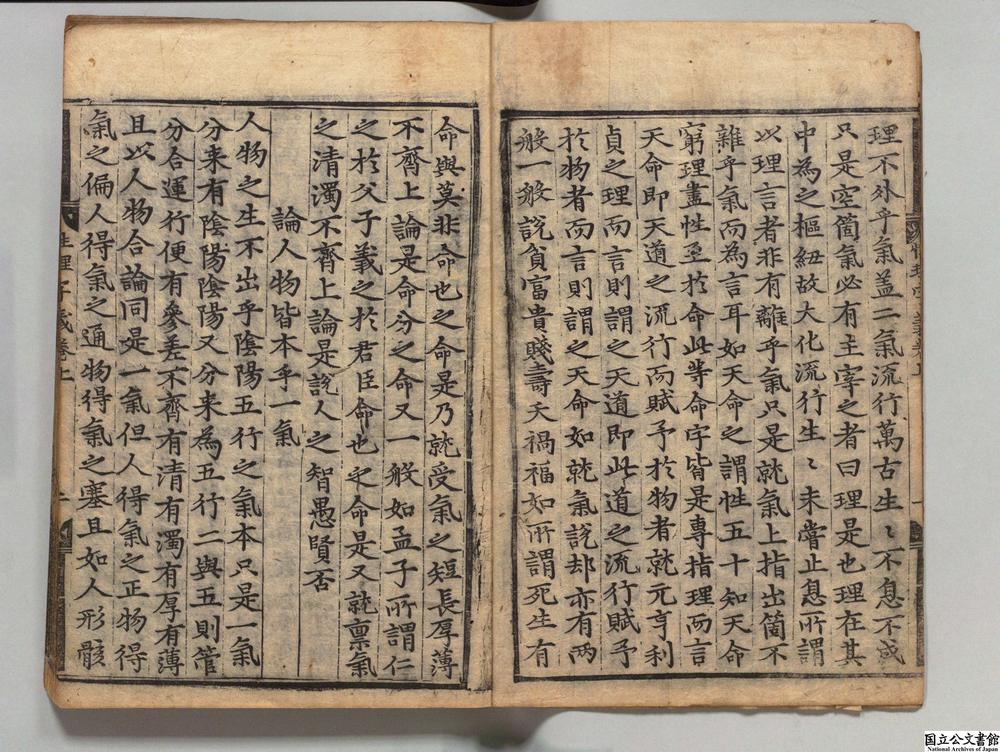 理不外乎氣盖二氣流行萬古生〻不息不成
只是空箇氣必有主宰之者曰理是也理在其
中為之樞紐故大化流行生〻未嘗止息所謂
以理言者非有離乎氣只是就氣上指出箇不
雜乎氣而為言耳如天命之謂性五十知天命
窮理盡性至於命此等命字皆是專指理而言
天命即天道之流行而賦予於物者就元亨利
貞之理而言則謂之天道即此道之流行賦予
於物者而言則謂之天命如就氣說却亦有兩
般一般說貧富貴賤壽夭禍福如所謂死生有
命與莫非命也之命是乃就受氣之短長厚薄
不齊上論是命分之命又一般如孟子所謂仁
之於父子義之於君臣命也之命是又就稟氣
之清濁不齊上論是說人之智愚賢否
論人物皆本乎一氣
人物之生不出乎陰陽五行之氣本只是一氣
分来有陰陽陰陽又分来為五行二與五則管
分合運行便有參差不齊有清有濁有厚有薄
且以人物合論同是一氣但人得氣之正物得
氣之偏人得氣之通物得氣之塞且如人形骸
性理字義卷上
二
国立公文書館
National Archives of Japan